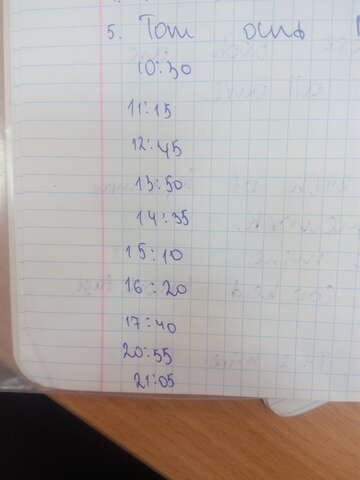 5. Тот осив
10:30
11:15
12:45
13:50
14:35
15:10
16:20
17:40
20:55
21:05